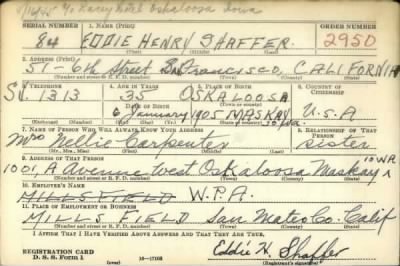 9/16/45 c/o Kasey Hotel Oskaloosa Iowa
SERIAL NUMBER 1. NAME (Print) ORDER NUMBER
84 EDDIE HENRY SHAFFER. 2950
2. ADDRESS (Print)
51 - 6th Street San Francisco, CALIFORNIA
(Number and street or R. F. D. number) (Town) (County) (State)
3. TELEPHONE 4. AGE IN YEARS 5. PLACE OF BIRTH 6. COUNTRY OF CITIZENSHIP
SU. 1313 35 OSKALOOSA
DATE OF BIRTH (Town or county)
6 January 190 MASKAY IOWA U.S.A
7. NAME OF PERSON WHO WILL ALWAYS KNOW YOUR ADDRESS 8. RELATIONSHIP OF THAT PERSON
Mrs Carpenter sister
9. ADDRESS OF THAT PERSON
1001, A Avenue West Oskaloosa Maskay IOWA
(Number and street or R. F. D. number) (Town) (County) (State)
10. EMPLOYER'S NAME
MILLS FIELD W.P.A.
11. PLACE OF EMPLOYMENT OR BUSINESS
MILLS FIELD San Mateo Co. Calif
(Number and street or R. F. D. number) (Town) (County) (State)
I AFFIRM THAT I HAVE VERIFIED ABOVE ANSWERS AND THAT THEY ARE TRUE.
REGISTRATION CARD
D. S. S. Form 1 (over) 16-17105
Eddie H. Shaffer